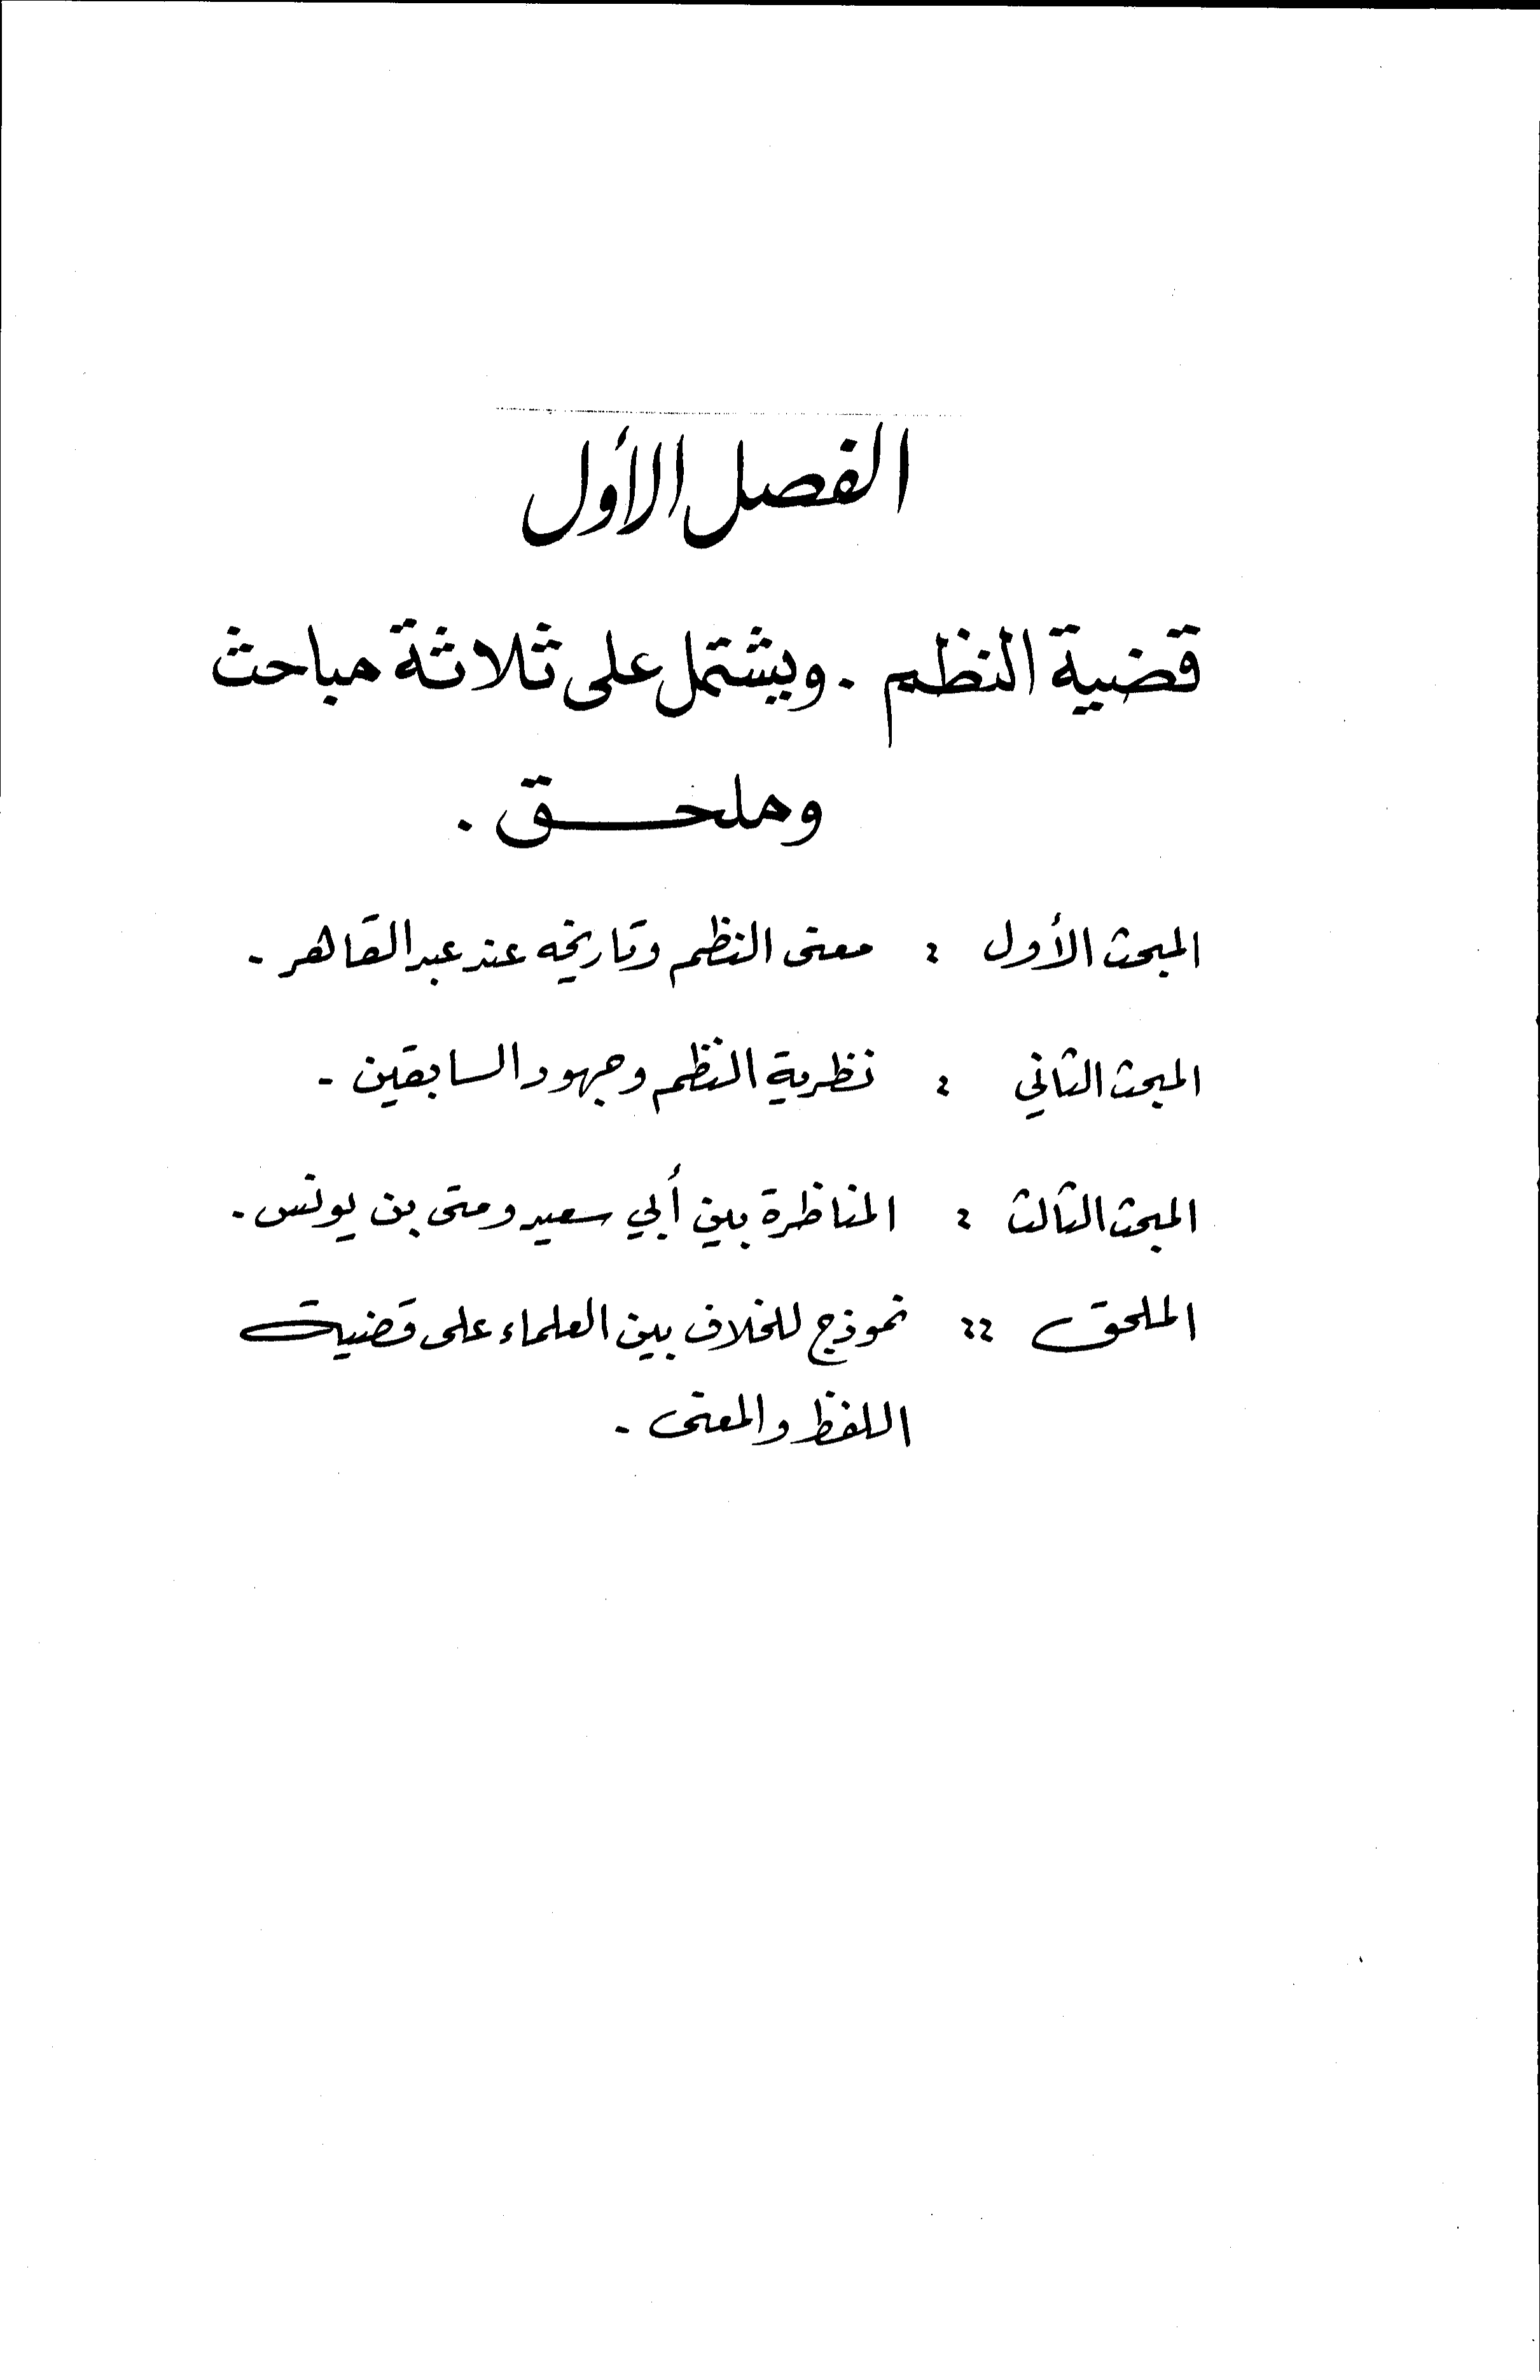 الفصل الأول
قضية النظم . ويشتمل على ثلاثة مباحث
وملحق .
المبحث الأول : معنى النظم وتاريخه عند عبد القاهر .
المبحث الثاني : نظرية النظم وجهود السابقين .
المبحث الثالث : المناظرة بين أبي سعيد ومتى بن يونس .
الملحق :: نموذج للخلاف بين العلماء على قضية
اللفظ والمعنى .